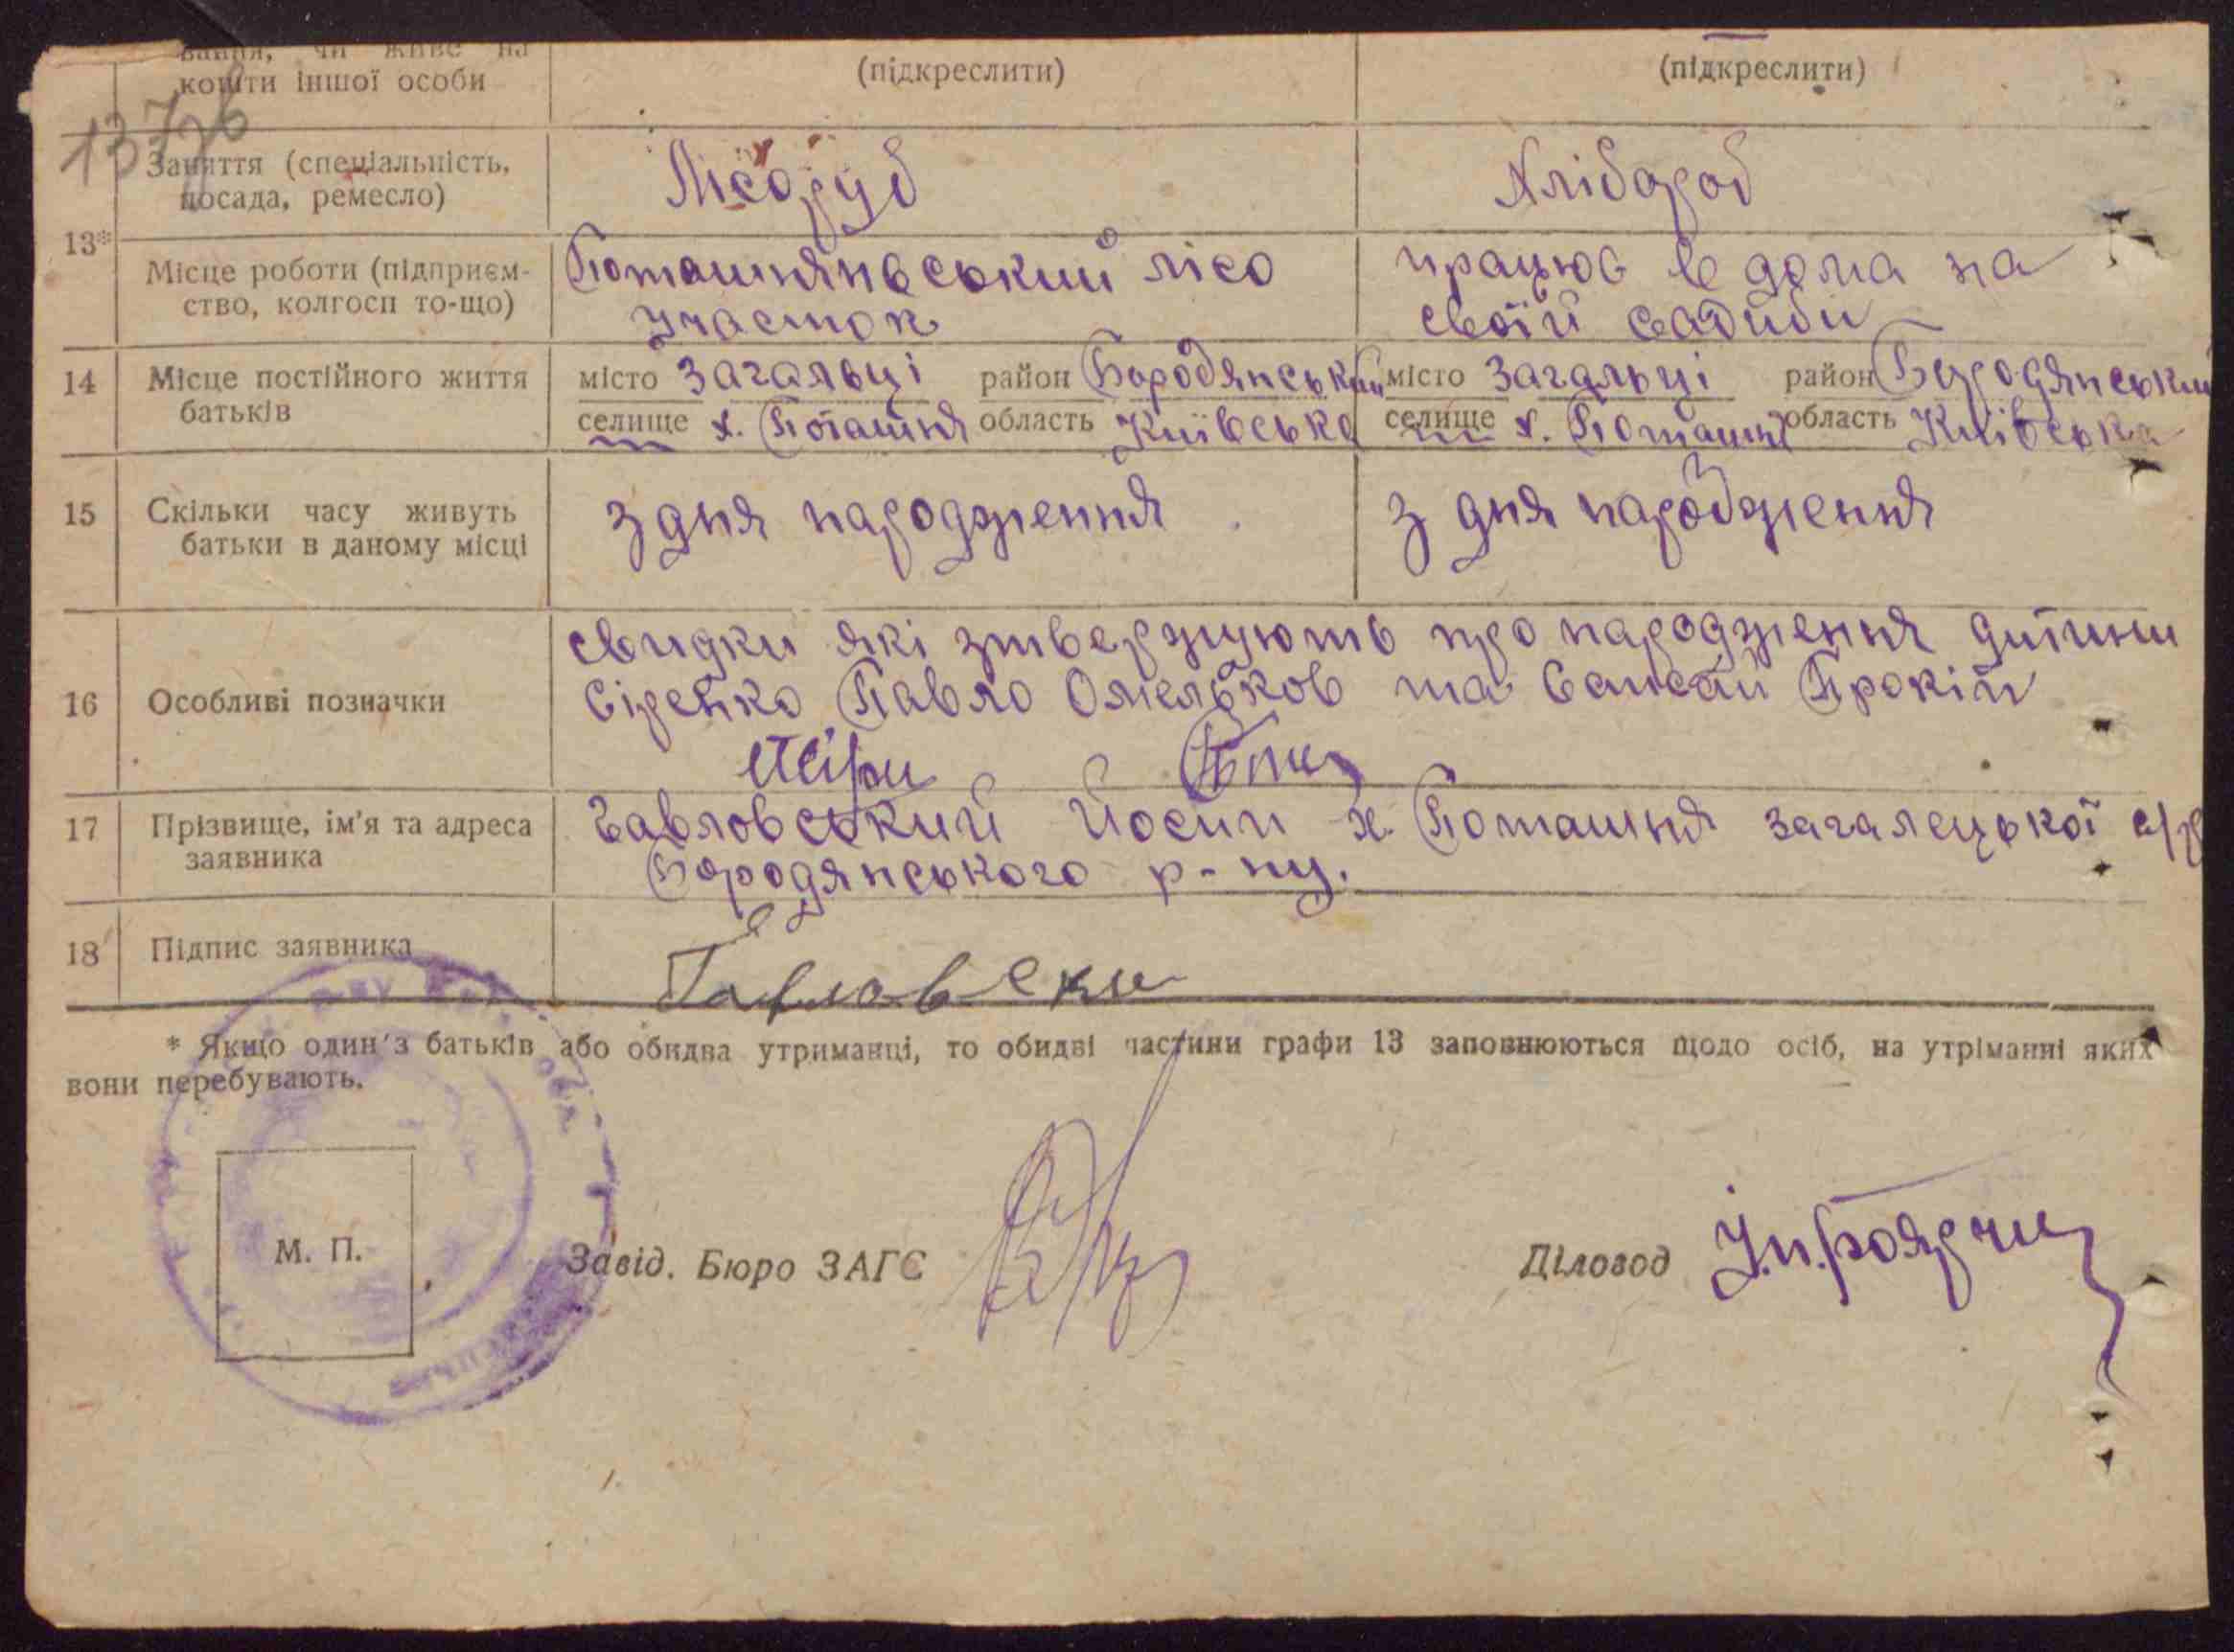 вання, чи живе на
кошти іншої особи
(підкреслити)
(підкреслити)
137зв
13*
Заняття (спеціальність,
посада, ремесло)
Лісоруб
Хлібороб
Місце роботи (підприєм-
ство, колгосп то-що)
Поташнянський лісо
участок
працює в дома на
своїй садиби
14
Місце постійного життя
батьків
місто Загальці район Бородянський
селище х. Поташня область Київська
місто Загальці район Бородянський
селище х. Поташня область Київська
15
Скільки часу живуть
батьки в даному місці
з дня народження
з дня народження
16
Особливі позначки
свидки які зтверджують про народження дитини
Сіренко Павло Омельков та Сапсай Прокіп
17
Прізвище, ім'я та адреса
заявника
Павловський Йосип х. Поташня загалецької с/р
Бородянського р-ну.
18
Підпис заявника
Павловски
* Якщо один з батьків або обидва утриманці, то обидві частини графи 13 заповнюються щодо осіб, на утріманні яких
вони перебувають.
М. П.
Завід. Бюро ЗАГС
Діловод